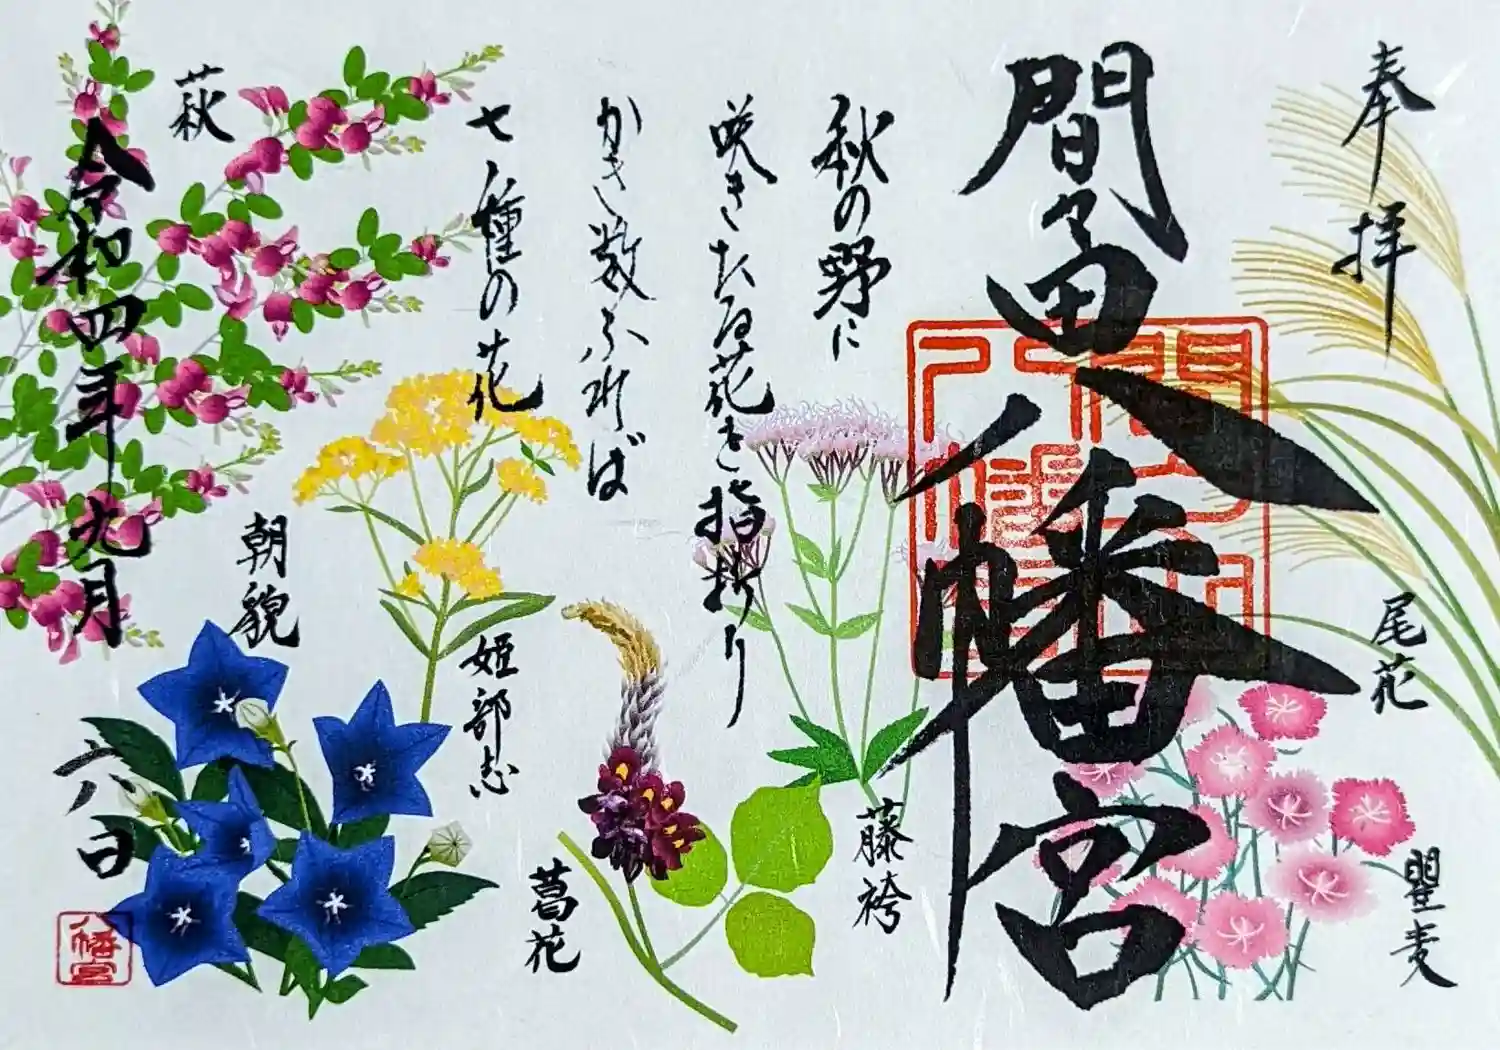 奉拝
尾花
瞿麦
間々田八幡宮
藤袴
秋の野に
咲きたる花を指折り
かき数ふれば
七種の花
葛花
姫部志
朝貌
萩
令和四年九月
六日
八幡宮